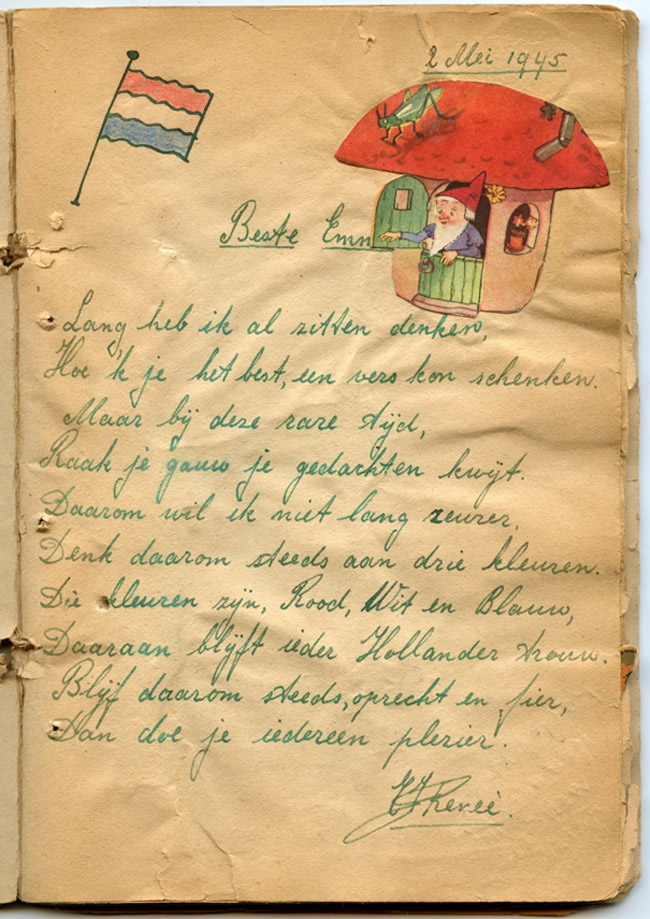 2 Mei 1945
Beste Emm
Lang heb ik al zitten denken,
Hoe 'k je het best, een vers kon schenken.
Maar bij deze rare tijd,
Raak je gauw je gedachten kwijt.
Daarom wil ik niet lang zeuren,
Denk daarom steeds aan drie kleuren.
Die kleuren zijn, Rood, Wit en Blauw,
Daaraan blijft ieder Hollander trouw.
Blijf daarom steeds, oprecht en fier,
Dan doe je iedereen plezier.